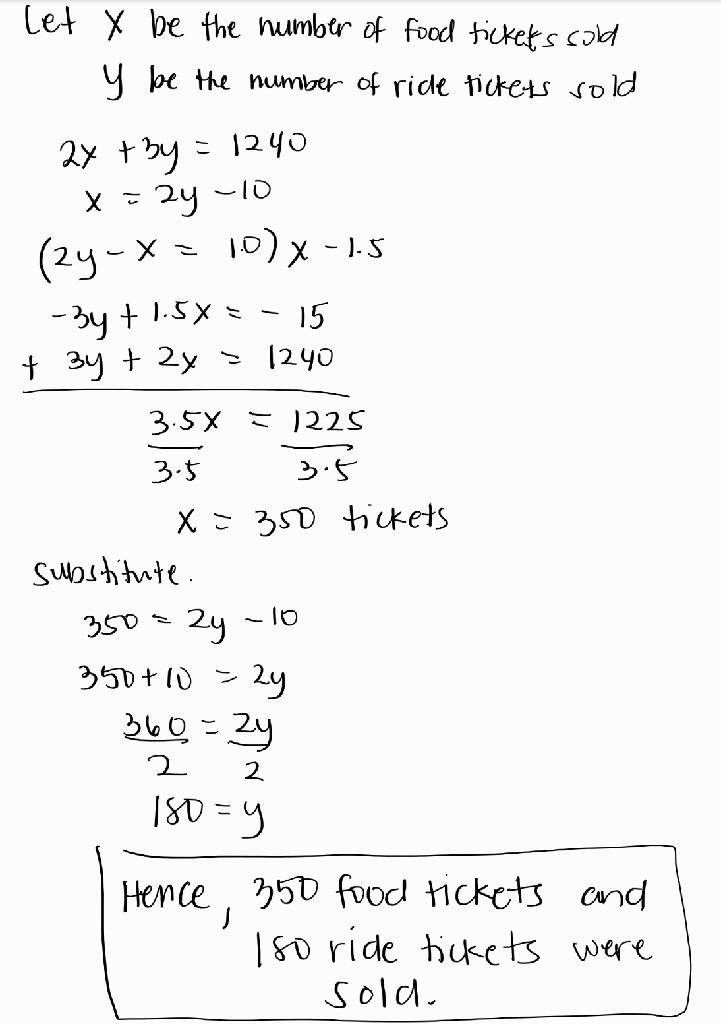 Let x be the number of food tickets sold
y be the number of ride tickets sold
2x + 3y = 1240
x = 2y - 10
(2y - x = 10) x - 1.5
-3y + 1.5x = - 15
+ 3y + 2x = 1240
3.5x = 1225
3.5 3.5
x = 350 tickets
substitute.
350 = 2y - 10
350 + 10 = 2y
360 = 2y
2 2
180 = y
Hence, 350 food tickets and
180 ride tickets were
sold.